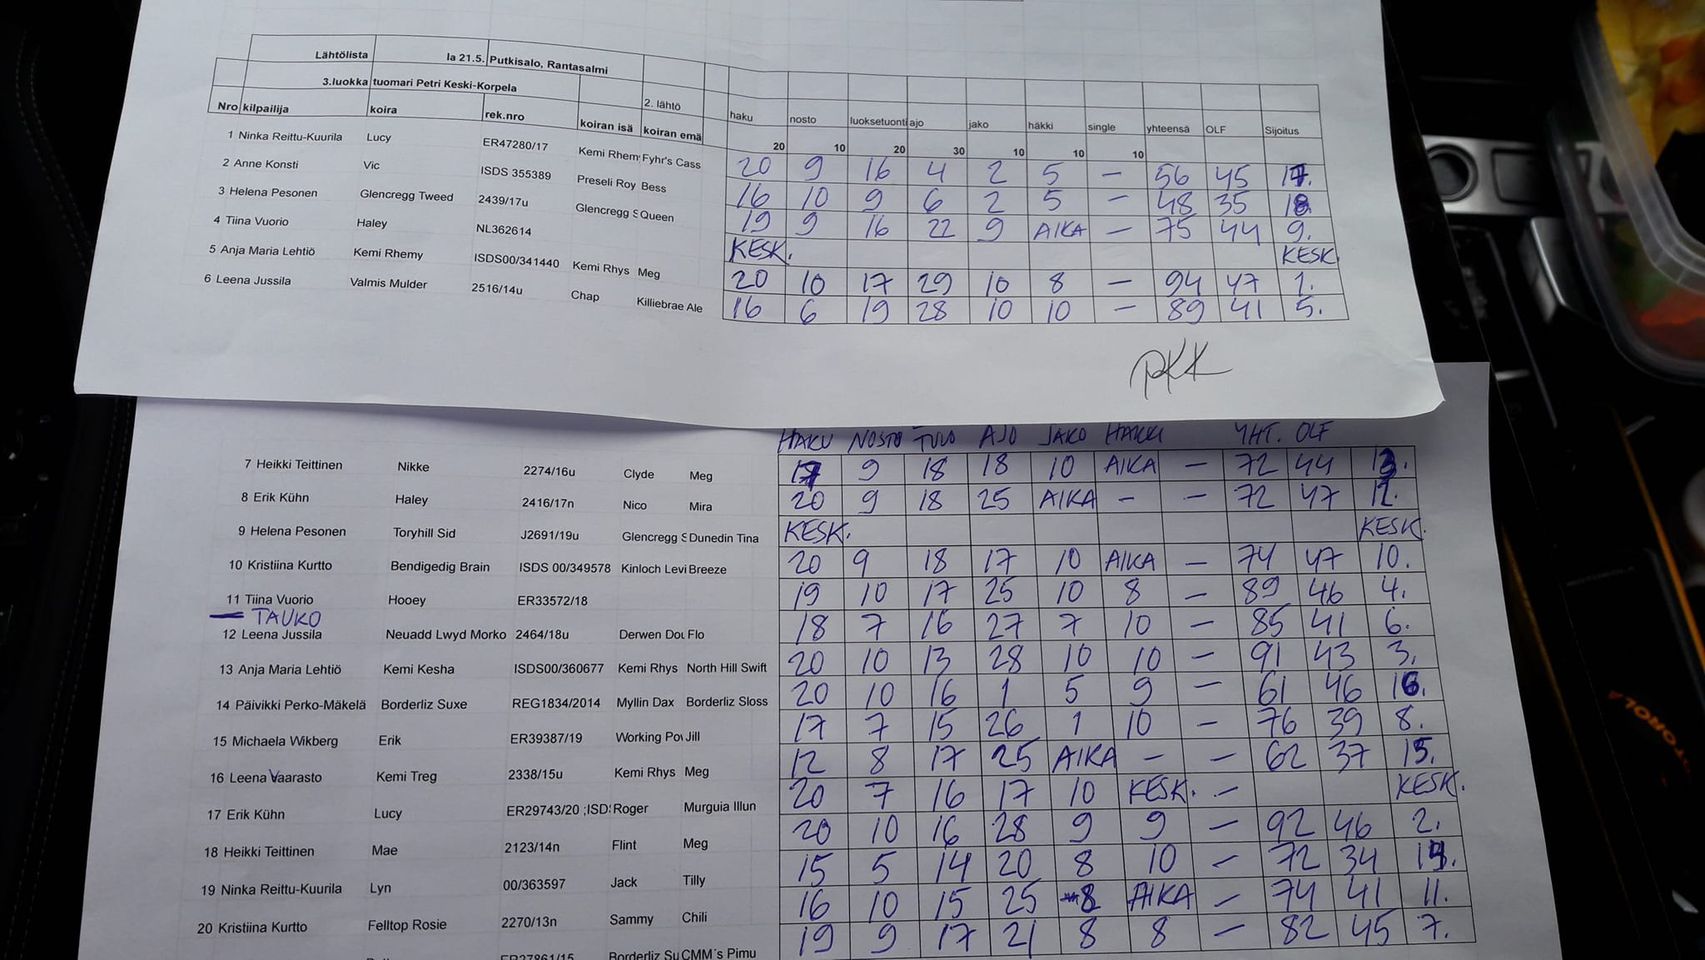 Lähtölista la 21.5. Putkisalo, Rantasalmi
3.luokka tuomari Petri Keski-Korpela 2. lähtö
Nro kilpailija koira rek.nro koiran isä koiran emä haku nosto luoksetuonti ajo jako häkki single yhteensä OLF Sijoitus
20 10 20 30 10 10 10
1 Ninka Reittu-Kuurila Lucy ER47280/17 Kemi Rhem Fyhr's Cass 20 9 16 4 2 5 – 56 45 17.
2 Anne Konsti Vic ISDS 355389 Preseli Roy Bess 16 10 9 6 2 5 – 48 35 18.
3 Helena Pesonen Glencregg Tweed 2439/17u Glencregg S Queen 19 9 16 22 9 AIKA – 75 44 9.
4 Tiina Vuorio Haley NL362614 KESK. KESK
5 Anja Maria Lehtiö Kemi Rhemy ISDS00/341440 Kemi Rhys Meg 20 10 17 29 10 8 – 94 47 1.
6 Leena Jussila Valmis Mulder 2516/14u Chap Killiebrae Ale 16 6 19 28 10 10 – 89 41 5.
PKK
HAKU NOSTO TUO AJO JAKO HÄKKI YHT. OLF
7 Heikki Teittinen Nikke 2274/16u Clyde Meg 17 9 18 18 10 AIKA – 72 44 13.
8 Erik Kühn Haley 2416/17n Nico Mira 20 9 18 25 AIKA – – 72 47 12.
9 Helena Pesonen Toryhill Sid J2691/19u Glencregg S Dunedin Tina KESK. KESK.
10 Kristiina Kurtto Bendigedig Brain ISDS 00/349578 Kinloch Levi Breeze 20 9 18 17 10 AIKA – 74 47 10.
11 Tiina Vuorio Hooey ER33572/18 19 10 17 25 10 8 – 89 46 4.
— TAUKO
12 Leena Jussila Neuadd Lwyd Morko 2464/18u Derwen Dou Flo 18 7 16 27 7 10 – 85 41 6.
13 Anja Maria Lehtiö Kemi Kesha ISDS00/360677 Kemi Rhys North Hill Swift 20 10 13 28 10 10 – 91 43 3.
14 Päivikki Perko-Mäkelä Borderliz Suxe REG1834/2014 Myllin Dax Borderliz Sloss 20 10 16 1 5 9 – 61 46 16.
15 Michaela Wikberg Erik ER39387/19 Working Pow Jill 17 7 15 26 1 10 – 76 39 8.
16 Leena Vaarasto Kemi Treg 2338/15u Kemi Rhys Meg 12 8 17 25 AIKA – – 62 37 15.
17 Erik Kühn Lucy ER29743/20 ;ISD: Roger Murguia Illun 20 7 16 17 10 KESK. – KESK.
18 Heikki Teittinen Mae 2123/14n Flint Meg 20 10 16 28 9 9 – 92 46 2.
19 Ninka Reittu-Kuurila Lyn 00/363597 Jack Tilly 15 5 14 20 8 10 – 72 34 14.
20 Kristiina Kurtto Felltop Rosie 2270/13n Sammy Chili 16 10 15 25 8 AIKA – 74 41 11.
ER27861/15 Borderliz Su CMM´s Pimu 19 9 17 21 8 8 – 82 45 7.